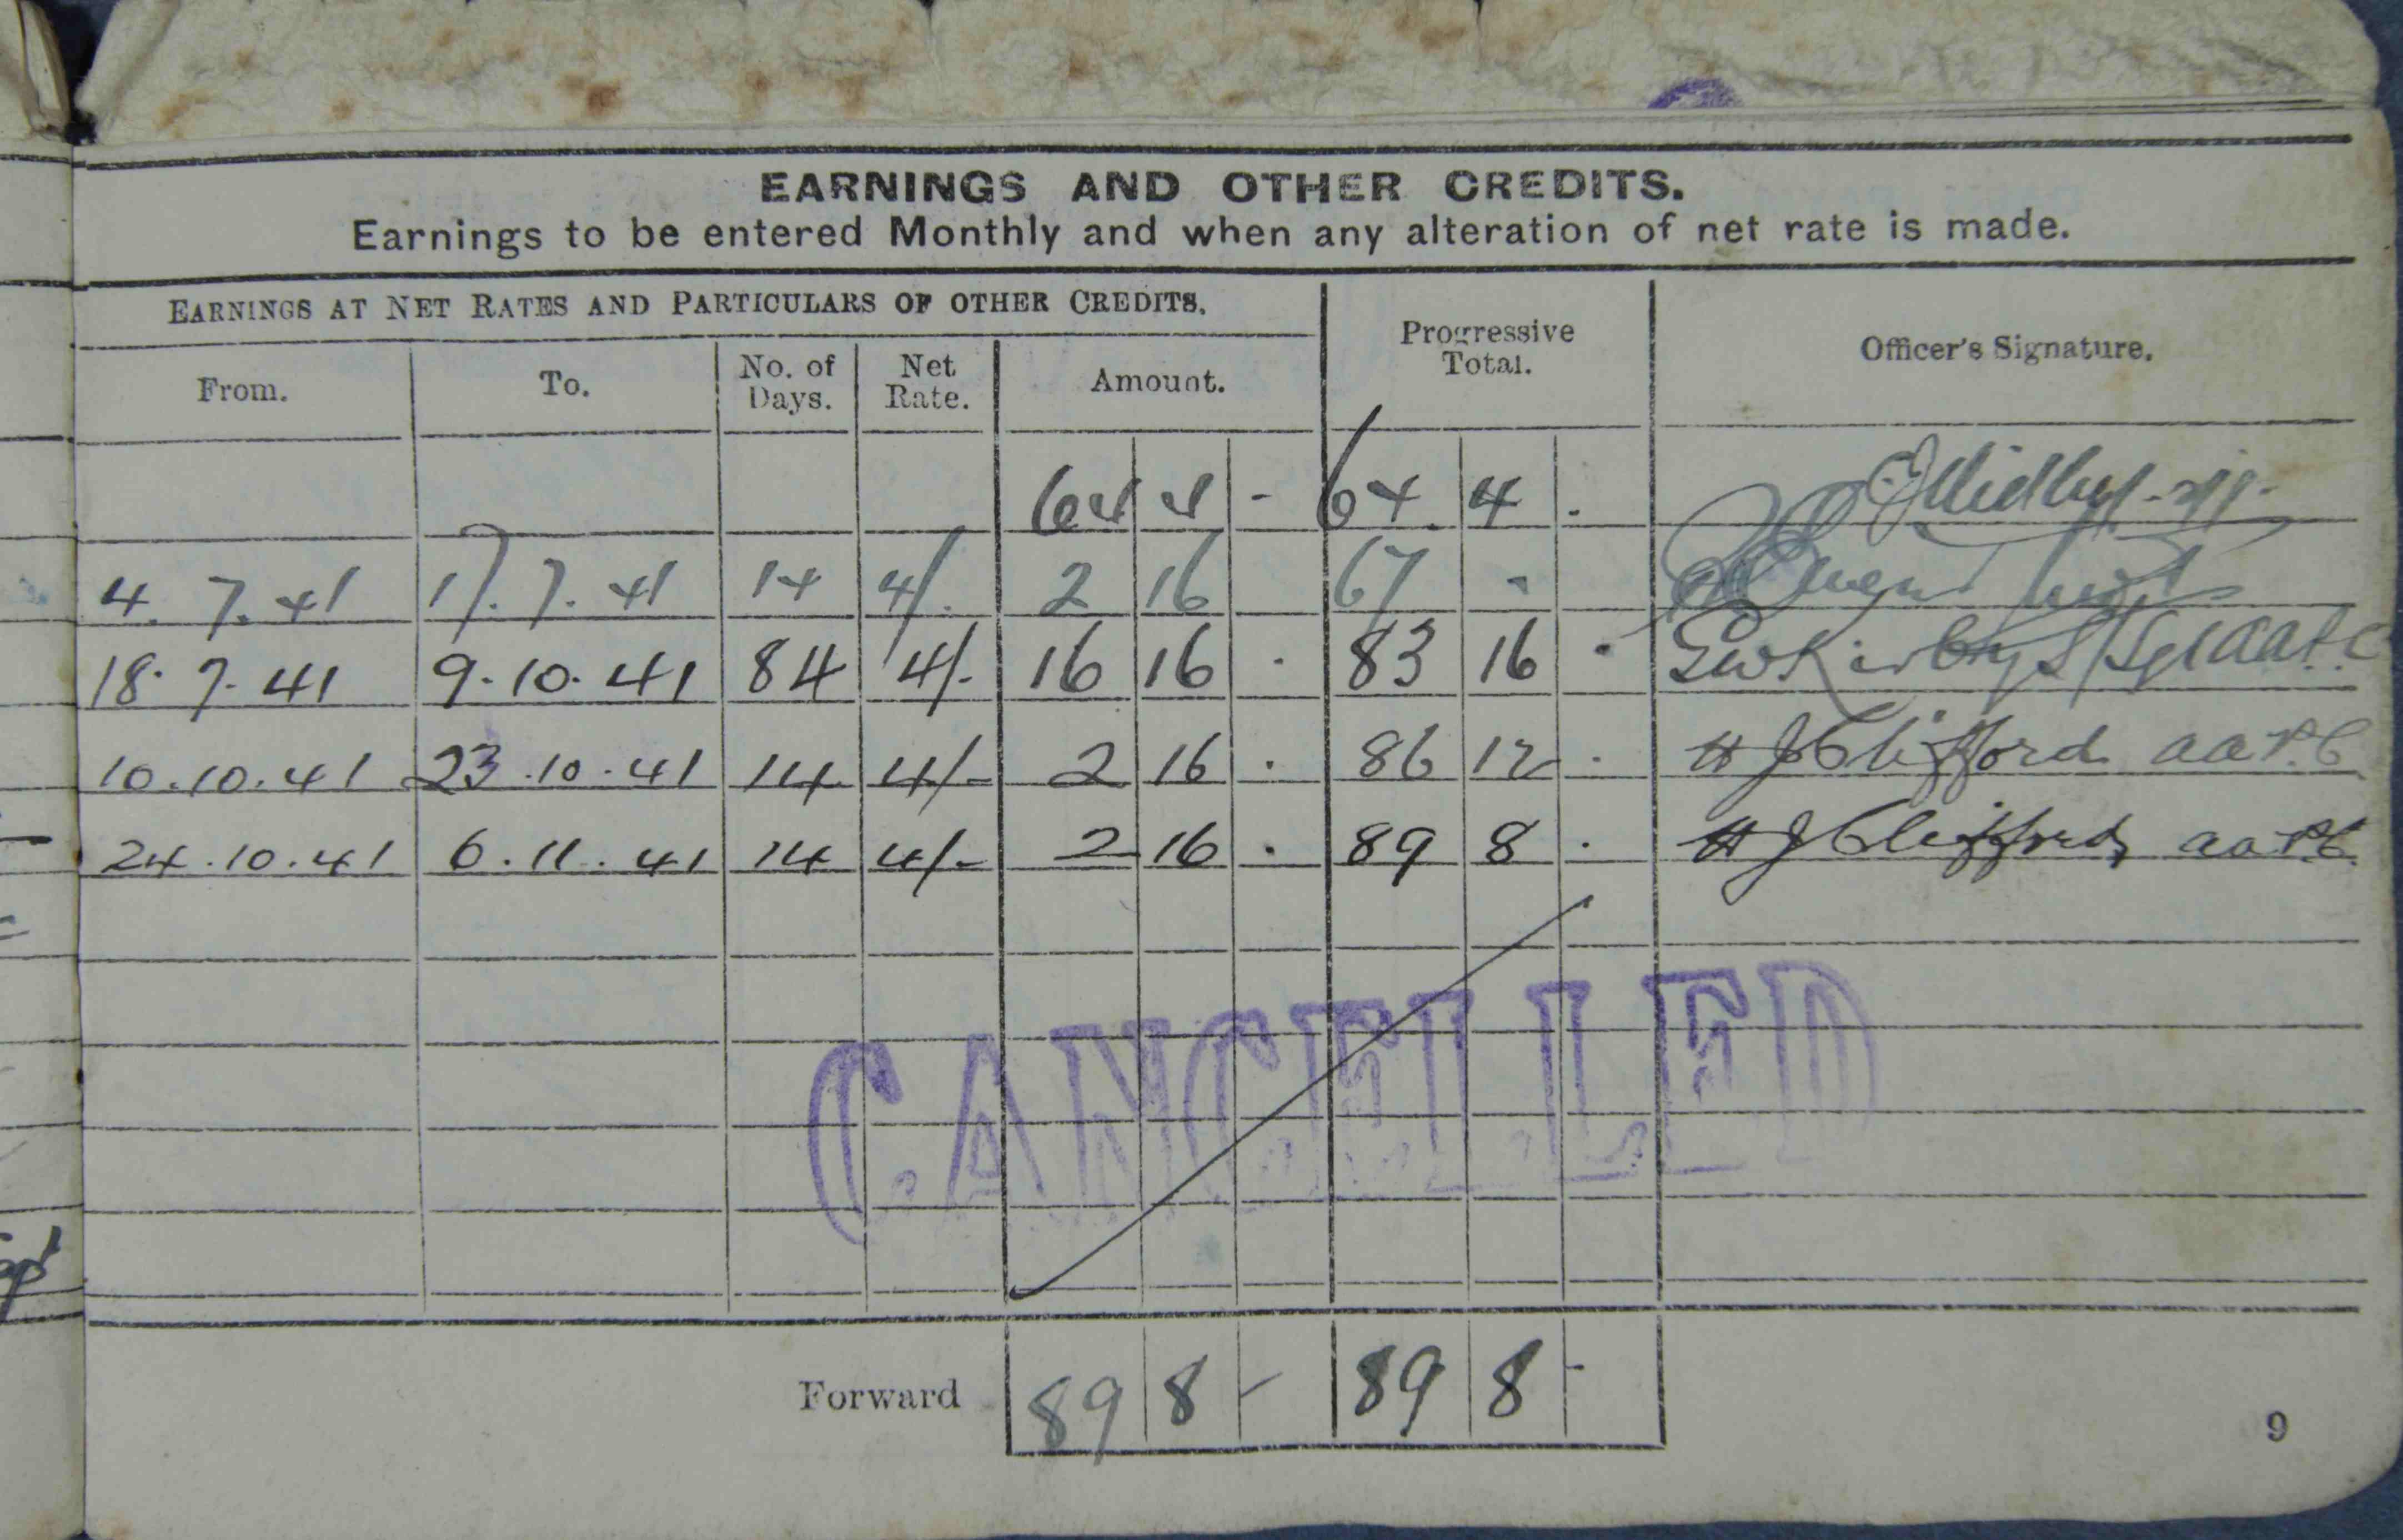 EARNINGS AND OTHER CREDITS.
Earnings to be entered Monthly and when any alteration of net rate is made.
EARNINGS AT NET RATES AND PARTICULARS OF OTHER CREDITS.
Progressive Total.
Officer's Signature.
From. To. No. of Days. Net Rate. Amount.
64 4 - 64 4 .
4. 7. 41 17. 7. 41 14 4/. 2 16 67 -
18. 7. 41 9. 10. 41 84 4/- 16 16 . 83 16 .
10. 10. 41 23. 10. 41 14 4/- 2 16 . 86 12 . H J Clifford AAPC
24. 10. 41 6. 11. 41 14 4/- 2 16 . 89 8 . H J Clifford AAPC
CANCELLED
Forward 89 8 - 89 8 -
9